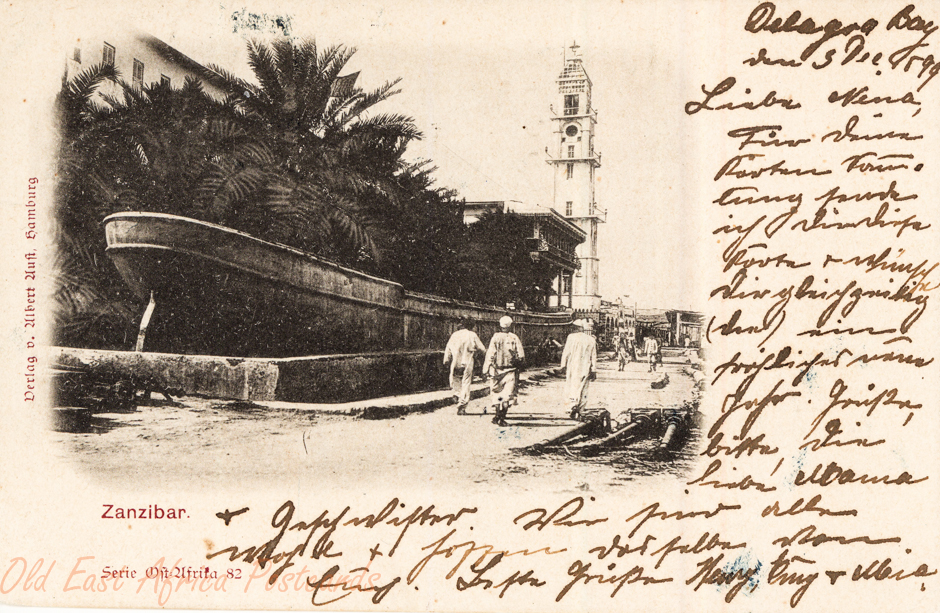 Delagoa Bay
den 3 Dec. 1899
Liebe Nena,
Für deine
Karten
sende
ich dir diese
Karte + wünsche
dir gleichzeitig
(der) ein
fröhliches neue
Jahr. Grüße,
bitte, die
liebe Mama
+ Geschwister. Wir sind alle
wohl + hoffen dasselbe von
Euch. Beste Grüße
Zanzibar.
Serie Ost-Afrika 82
Verlag v. Albert Aust, Hamburg
Old East Africa Postcards